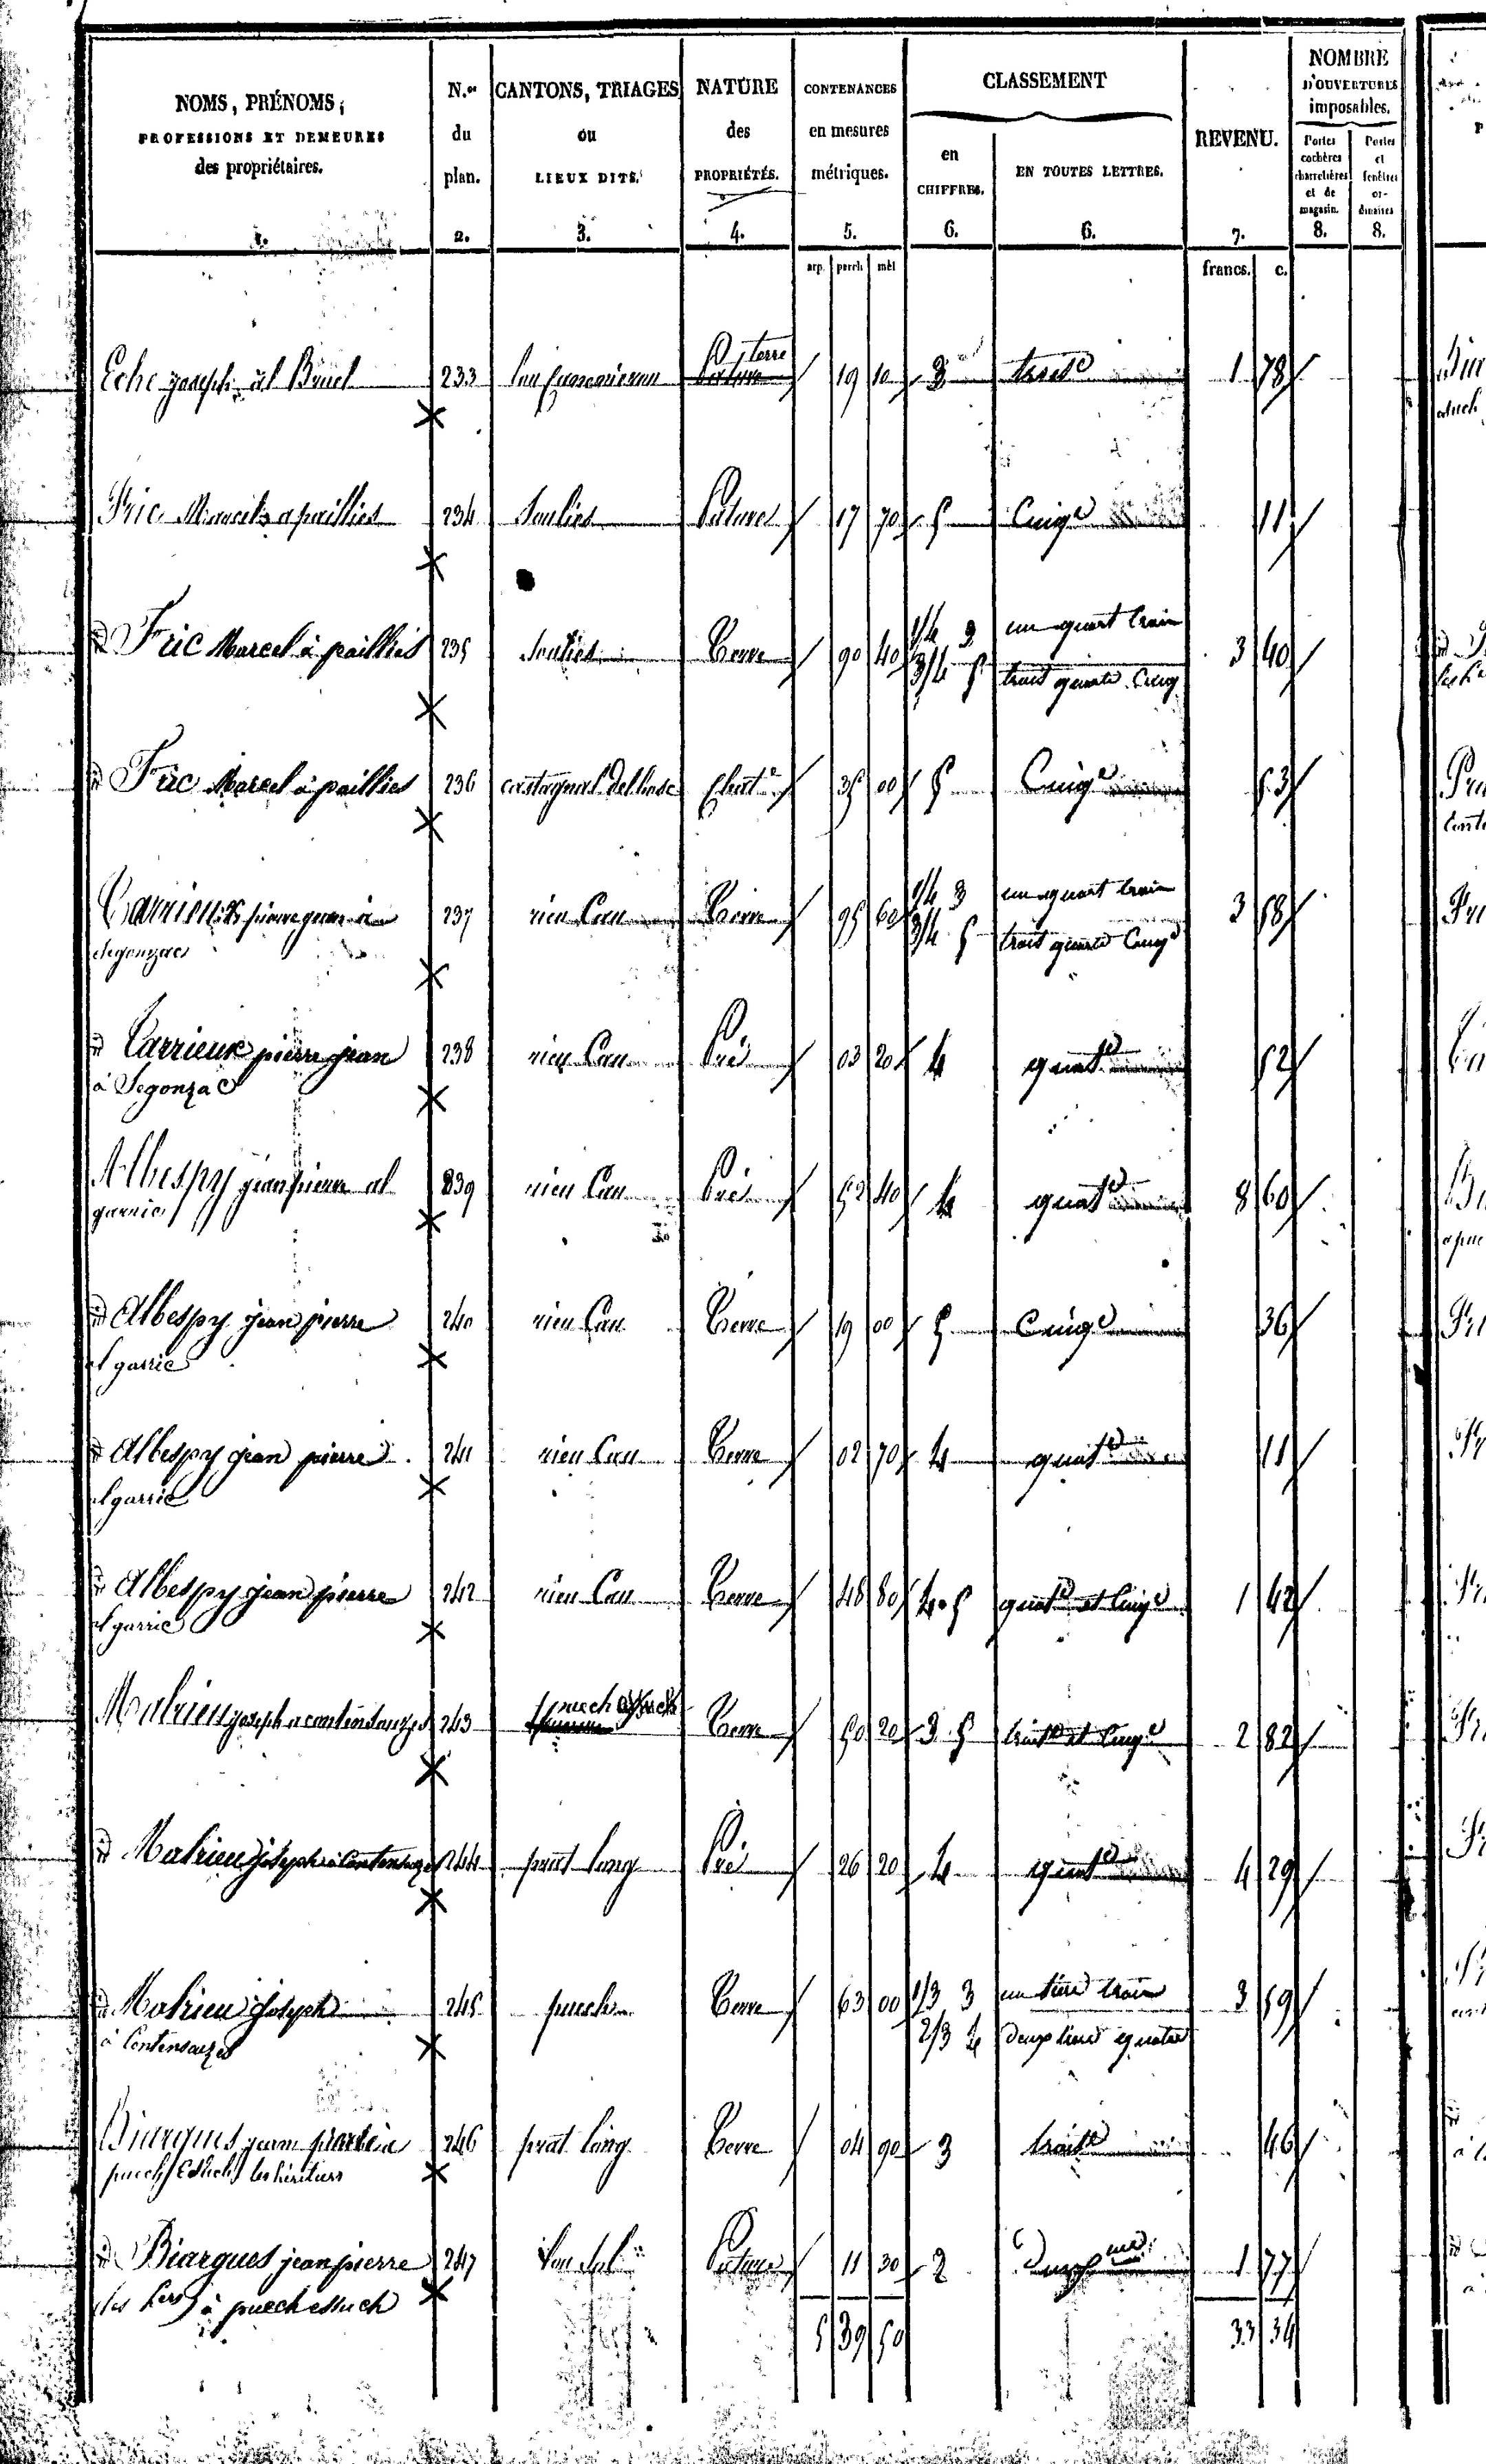 NOMS, PRÉNOMS,
PROFESSIONS ET DEMEURES
des propriétaires.
1.
N.os
du
plan.
2.
CANTONS, TRIAGES
ou
LIEUX DITS.
3.
NATURE
des
PROPRIÉTÉS.
4.
CONTENANCES
en mesures
métriques.
5.
arp. perch mèt
CLASSEMENT
en
CHIFFRES.
6.
EN TOUTES LETTRES.
6.
REVENU.
7.
francs. c.
NOMBRE
D'OUVERTURES
imposables.
Portes
cochères
charretières
et de
magasin.
8.
Portes
et
fenêtres
or-
dinaires
8.
Eche joseph al Bruel 233 terre 19 10 3 trois.e 1 78
Fric Marcel a paillies 234 Soulies Pature 17 70 5 Cinq.e 11
id Fric Marcel à paillies 235 Soulies Terre 90 40 1/4 3 un quart trois 3 40
3/4 5 trois quarts Cinq
id Fric Marcel à paillies 236 Chat.e 35 00 5 Cinq.e 53
Carrieux pierre jean à 237 rieu Cau Terre 95 60 1/4 3 un quart trois 3 58
Segonzac 3/4 5 trois quarts Cinq.e
id Carrieux pierre jean 238 rieu Cau Pré 03 20 4 quat.e 52
à Segonzac
Albespy jean pierre al 239 rieu Cau Pré 52 40 4 quat.e 8 60
garric
id Albespy jean pierre 240 rieu Cau Terre 19 00 5 Cinq.e 36
al garric
id Albespy jean pierre 241 rieu Cau Terre 02 70 4 quat.e 11
al garric
id Albespy jean pierre 242 rieu Cau Terre 48 80 4.5 quat.e et Cinq.e 1 42
al garric
Malrieu joseph a contensouzes 243 puech Terre 50 20 3 5 trois.e et Cinq.e 2 82
id Malrieu joseph à Contensouzes 244 prat long Pré 26 20 4 quat.e 4 29
id Malrieu joseph 245 puech Terre 63 00 1/3 3 un tiers trois 3 59
à Contensouzes 2/3 4 Deux tiers quatre
Biargues jean pierre à 246 prat long Terre 04 90 3 trois.e 46
puech Esluch les héritiers
id Biargues jean pierre 247 Pature 11 30 2 Deux.me 1 77
les hers à puech esluch
5 39 50 33 34